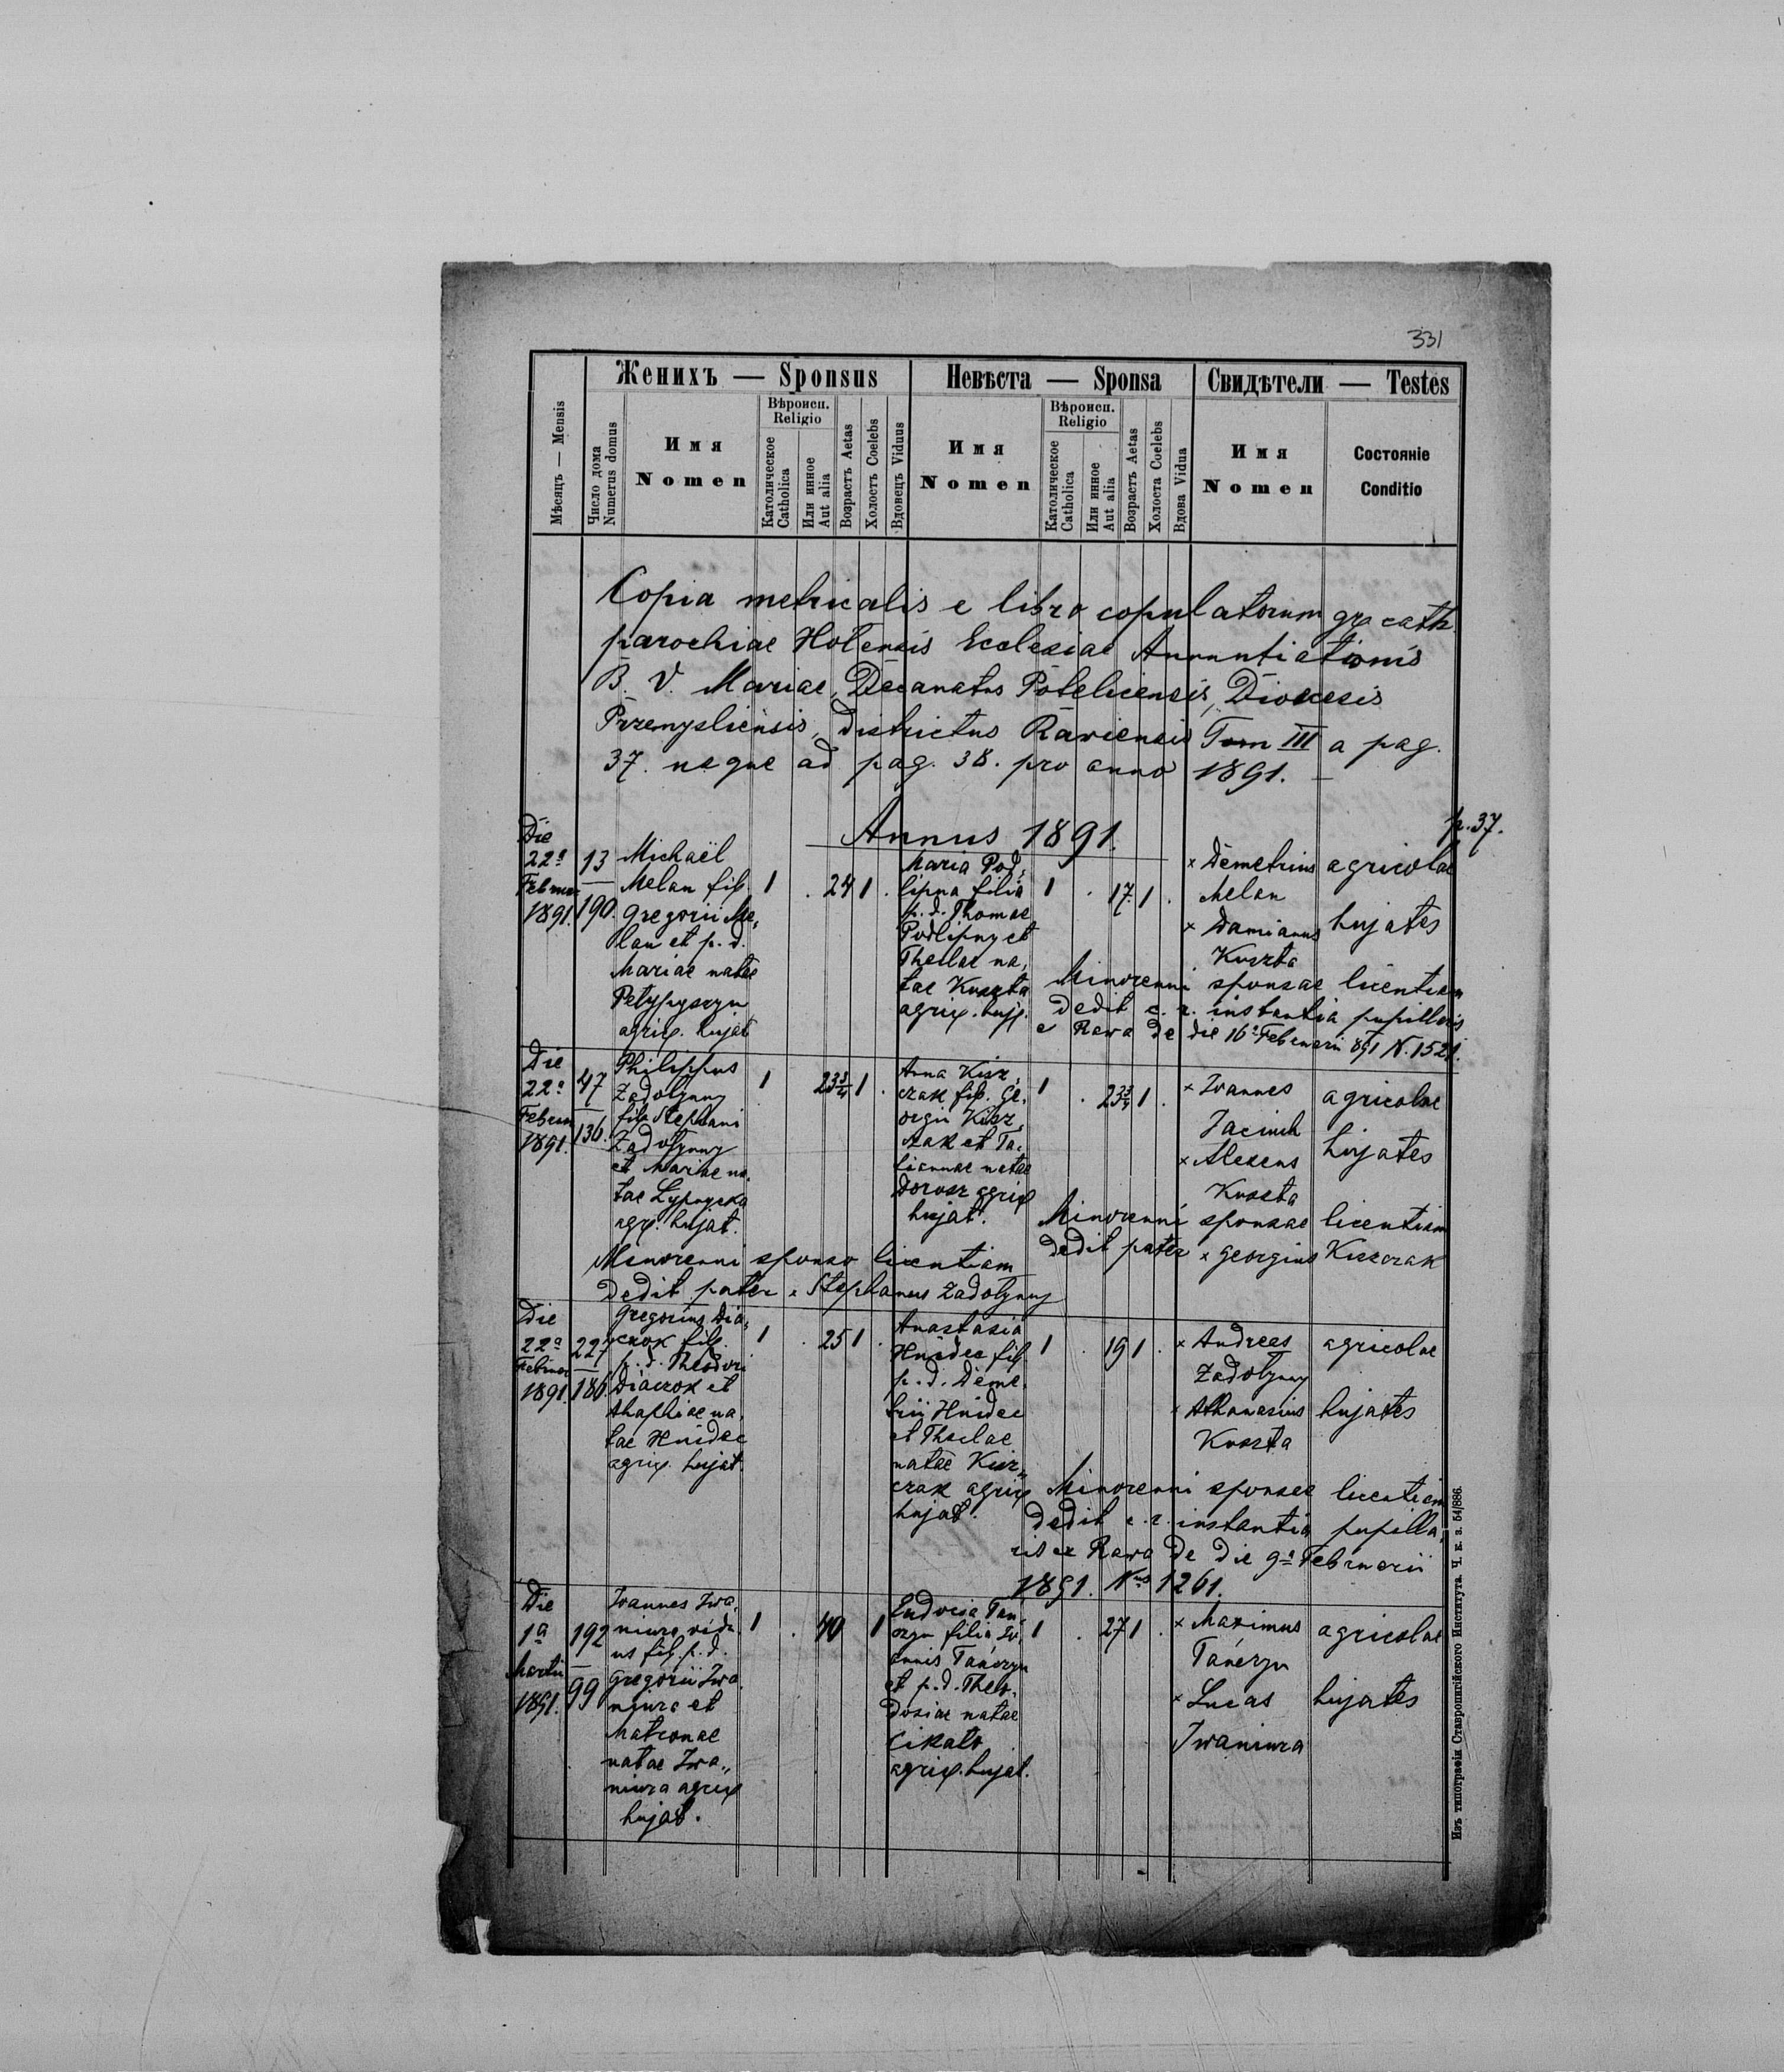 331
Женихъ — Sponsus
Невѣста — Sponsa
Свидѣтели — Testes
Мѣсяцъ — Mensis
Число дома
Numerus domus
Имя
Nomen
Вѣроисп.
Religio
Католическое
Catholica
Или инное
Aut alia
Возрастъ Aetas
Холостъ Coelebs
Вдовецъ Viduus
Имя
Nomen
Вѣроисп.
Religio
Католическое
Catholica
Или инное
Aut alia
Возрастъ Aetas
Холоста Coelebs
Вдова Vidua
Имя
Nomen
Состоянiе
Conditio
Copia metricalis e libro copulatorum gr cath
parochiae Holensis Ecclesiae Annuntiationis
B. V. Mariae, Decanatus Potelicensis, Dioecesis
Przemysliensis, districtus Raviensis Tom III a pag.
37. usque ad pag. 38. pro anno 1891. —
p. 37.
Annus 1891.
Die
22a
Februar
1891.
13
190.
Michaël
Melan fil.
Gregorii Me,
lan et p. d.
Mariae natae
agric. hujat
1 . 24 1 .
Maria Pod,
lipna filia
p. d. Thomae
Podlipny et
Theclae na,
tae Kuszta
agric. huj.
1 . 17 1 .
× Demetrius
Melan
× Damianus
Kuszta
agricolae
hujates
Minorenni sponsae licentiam
dedit c. r. instantia pupillaris
e Rawa de die 16a Februarii 891 N. 1521.
Die
22a
Februar
1891.
47
136.
Philippus
Zadolynny
fil. Stephani
Zadolynny
et Mariae na,
tae
agr. hujat.
1 23 3/4 1 .
Anna Kisz,
czak fil. Ge,
orgii Kisz,
czak et Ta,
tiannae natae
Dorosz agric
hujat.
1 . 23 3/4 1 .
× Ioannes
× Alexius
Kuszta
agricolae
hujates
Minorenni sponsae licentiam
dedit pater × Georgius Kiszczak
Minorenni sponso licentiam
dedit pater × Stephanus Zadolynny
Die
22a
Februar
1891.
227
186.
Gregorius Dia,
czok fil.
p. d. Theodori
Diaczok et
Ahaphiae na,
tae Hnidec
agric. hujat.
1 . 25 1 .
Anastasia
Hnidec fil.
p. d. Deme,
trii Hnidec
et Theclae
natae Kisz,,
czak agric
hujat.
1 . 19 1 .
× Andreas
Zadolynny
× Athanasius
Kuszta
agricolae
hujates
Minorenni sponsae licentiam
dedit c. r. instantia pupilla,
ris ex Rawa de die 9a Februarii
1891. Nus 1261.
Die
1a
Martii
1891.
192
99
Ioannes Iwa,
niura, vidu,
us fil. p. d.
Gregorii Iwa,
niura et
Matronae
natae Iwa,,
niura agric
hujat.
1 . 40 1
Eudocia Tan,
czyn filia Io,
annis Tanczyn
et p. d. Theo,
dosiae natae
Cikalo
agric. hujat.
1 . 27 1 .
× Maximus
Tanczyn
× Lucas
Iwaniura
agricolae
hujates
Изъ типографіи Ставропигійского Института. Ч. к. з. 54/886.